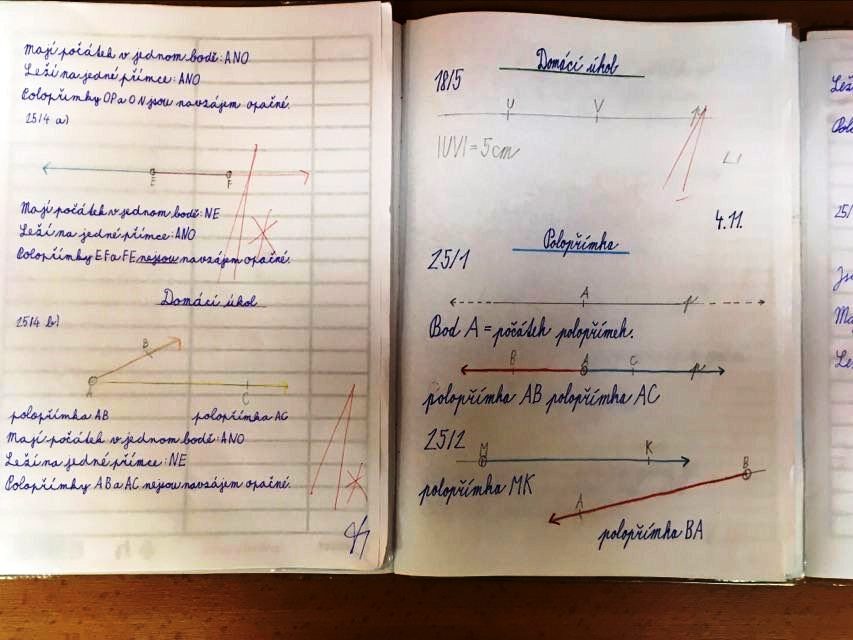 Mají počátek v jednom bodě: ANO
Leží na jedné přímce: ANO
Polopřímky OP a ON jsou navzájem opačné.
25/4 a)
E F
Mají počátek v jednom bodě: NE
Leží na jedné přímce: ANO
Polopřímky EF a FE nejsou navzájem opačné.
Domácí úkol
25/4 b)
B
A
C
polopřímka AB polopřímka AC
Mají počátek v jednom bodě: ANO
Leží na jedné přímce: NE
Polopřímky AB a AC nejsou navzájem opačné.
Domácí úkol
18/5
U V
|UV| = 5cm
4.11.
Polopřímka
25/1
A p
Bod A = počátek polopřímek.
B A C p
polopřímka AB polopřímka AC
25/2
M K
polopřímka MK
B
A
polopřímka BA
Lež
Polo
25/
Ma
Lež